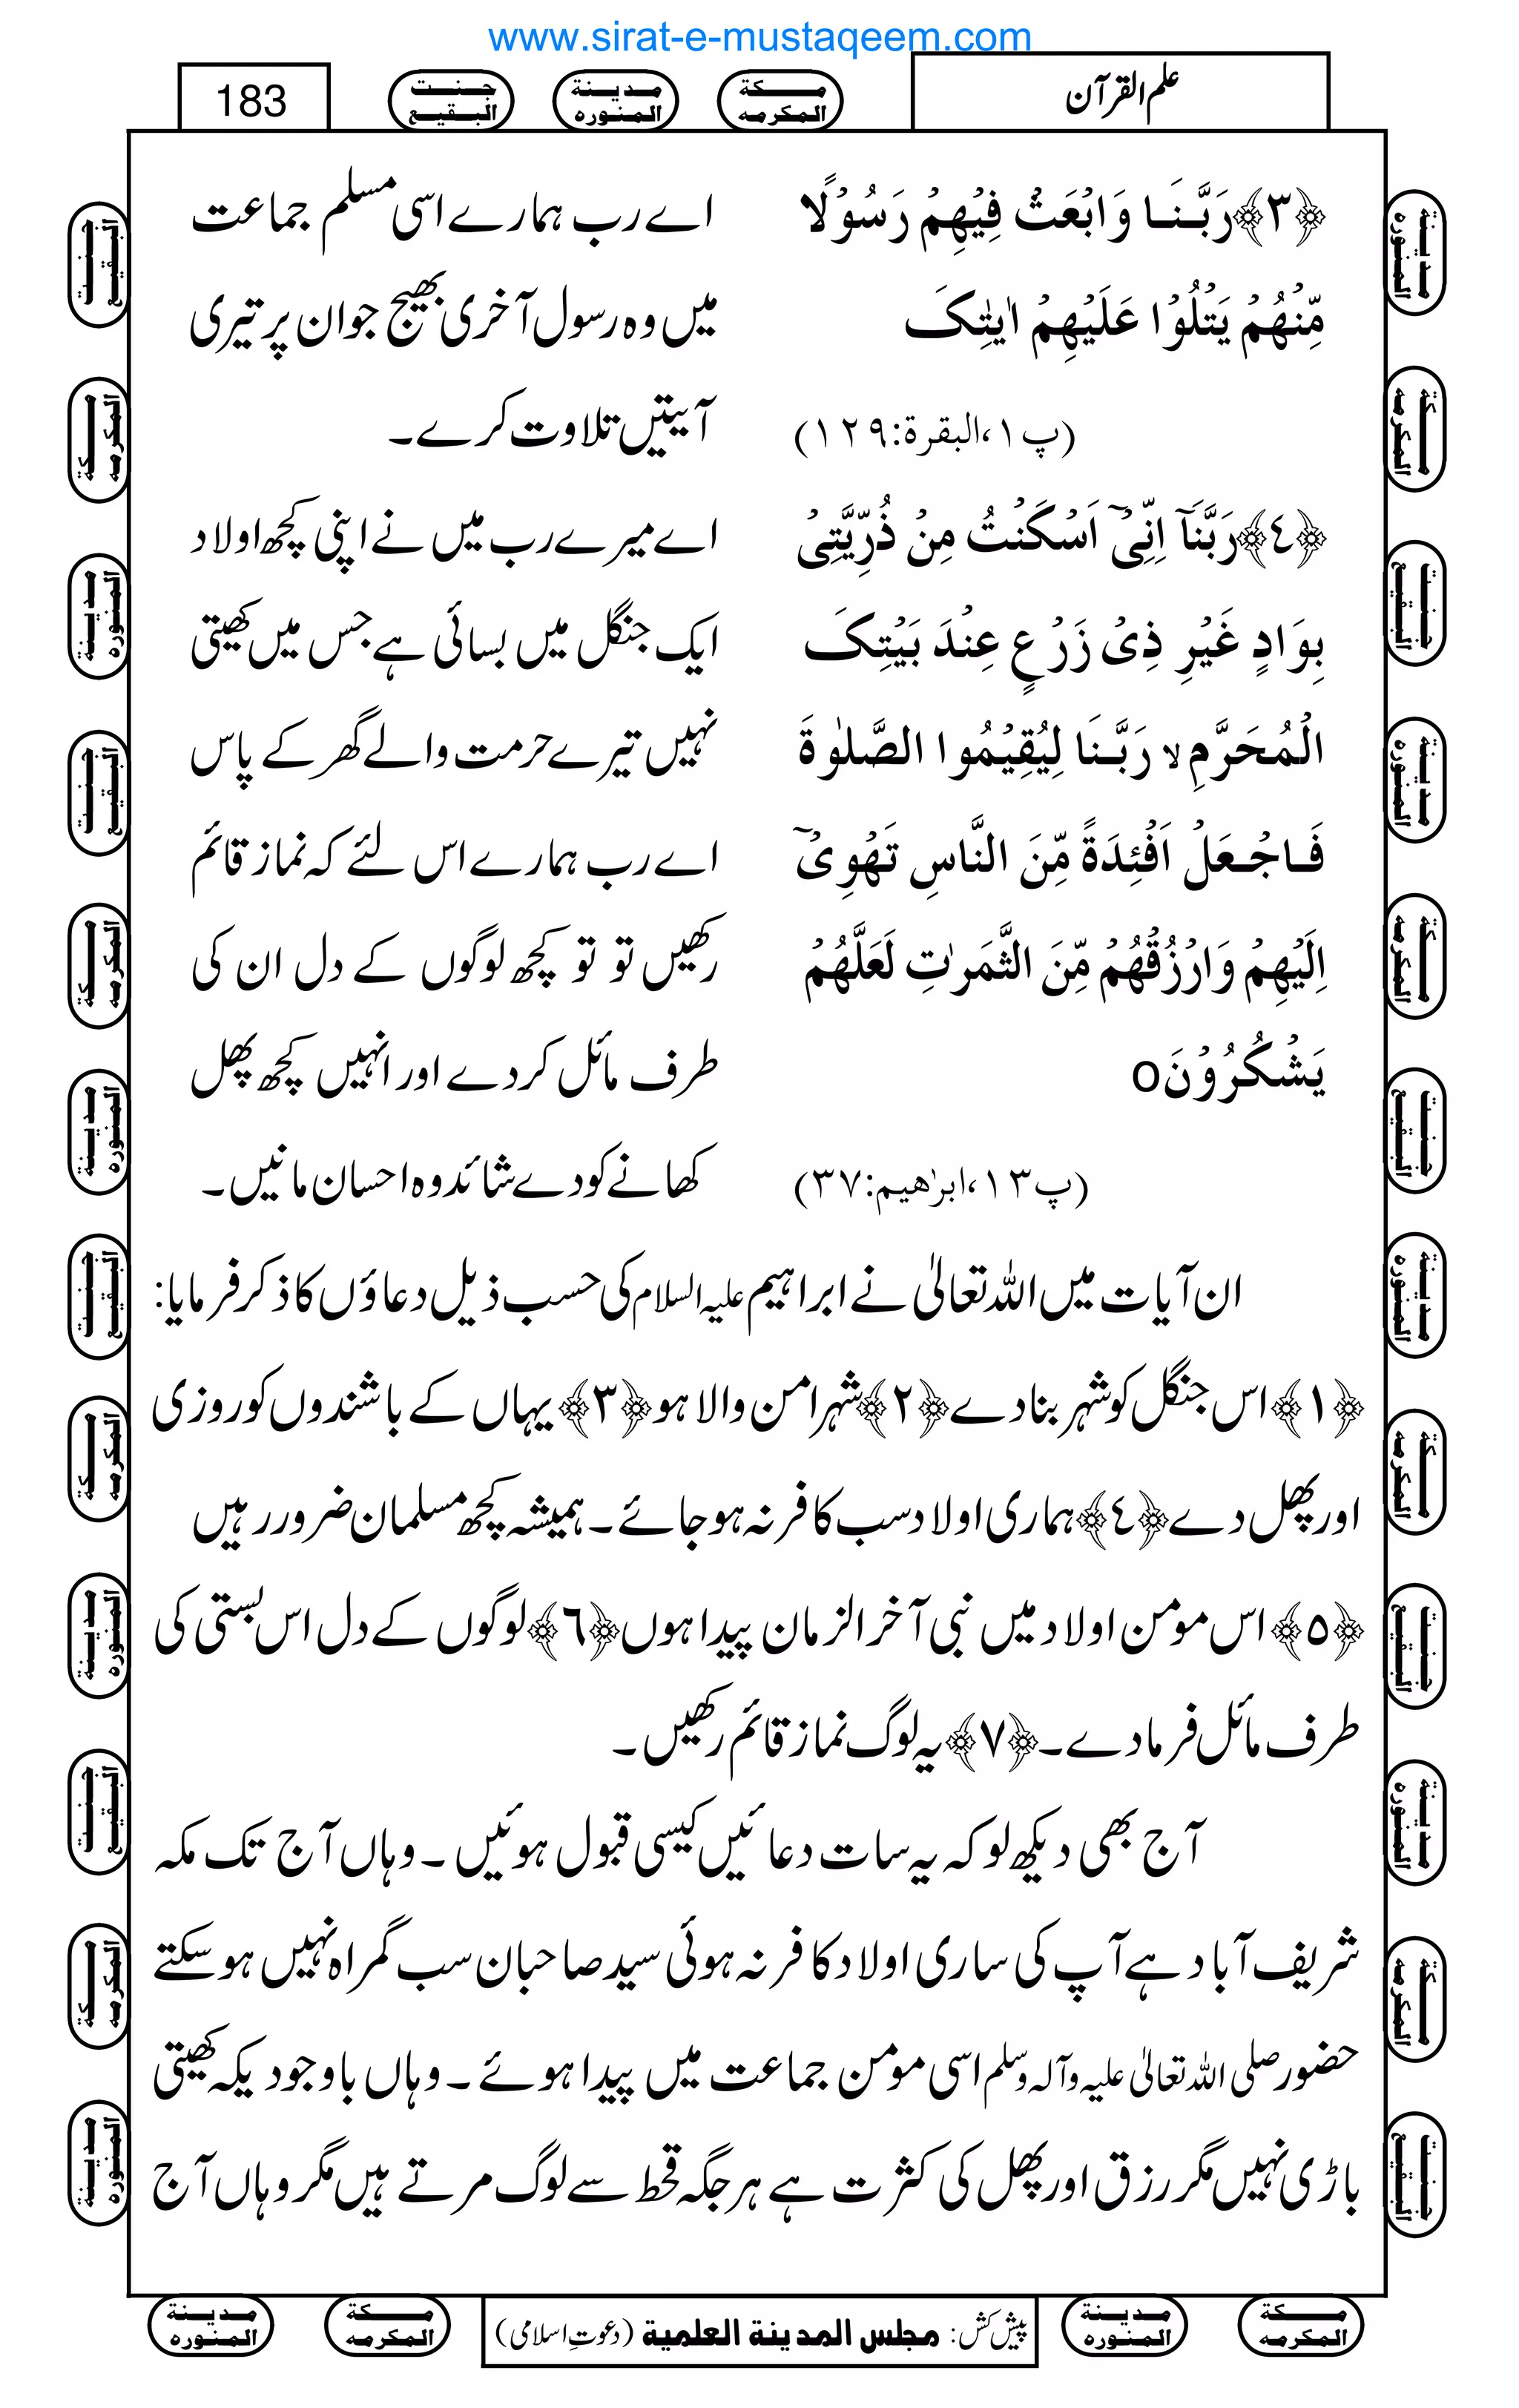 www.sirat-e-mustaqeem.com
علم القرآن
مکة المکرمه
مدینة المنوره
جنت البقیع
183
﴿٣﴾رَبَّنَا وَابْعَثْ فِیْهِمْ رَسُوْلًا
مِّنْهُمْ یَتْلُوْا عَلَیْهِمْ اٰیٰتِکَ
(پ١،البقرة:١٢٩)
اے رب ہمارے اسی مسلم جماعت
میں وہ رسول آخری بھیج جو ان پر تیری
آیتیں تلاوت کرے۔
﴿٤﴾رَبَّنَاۤ اِنِّیْۤ اَسْکَنْتُ مِنْ ذُرِّیَّتِیْ
بِوَادٍ غَیْرِ ذِیْ زَرْعٍ عِنْدَ بَیْتِکَ
الْمُحَرَّمِ ۙ رَبَّنَا لِیُقِیْمُوا الصَّلٰوةَ
فَاجْعَلْ اَفْئِدَةً مِّنَ النَّاسِ تَهْوِیْۤ
اِلَیْهِمْ وَارْزُقْهُمْ مِّنَ الثَّمَرٰتِ لَعَلَّهُمْ
یَشْکُرُوْنَo
(پ١٣،ابرٰهیم:٣٧)
اے میرے رب میں نے اپنی کچھ اولاد
ایک جنگل میں بسائی ہے جس میں کھیتی
نہیں تیرے حرمت والے گھر کے پاس
اے رب ہمارے اس لئے کہ نماز قائم
رکھیں تو تو کچھ لوگوں کے دل ان کی
طرف مائل کردے اور انہیں کچھ پھل
کھانے کو دے شائد وہ احسان مانیں۔
ان آیات میں اللہ تعالیٰ نے ابراہیم علیہ السلام کی حسب ذیل دعاؤں کا ذکر فرمایا:
﴿١﴾اس جنگل کو شہر بنادے﴿٢﴾شہر امن والا ہو﴿٣﴾یہاں کے باشندوں کو روزی
اور پھل دے﴿٤﴾ہماری اولاد سب کافر نہ ہوجائے۔ہمیشہ کچھ مسلمان ضرور رہیں
﴿٥﴾اس مومن اولاد میں نبی آخر الزمان پیدا ہوں﴿٦﴾لوگوں کے دل اس بستی کی
طرف مائل فرمادے۔﴿٧﴾یہ لوگ نماز قائم رکھیں۔
آج بھی دیکھ لو کہ یہ سات دعائیں کیسی قبول ہوئیں۔وہاں آج تک مکہ
شریف آباد ہے آپ کی ساری اولاد کافر نہ ہوئی سید صاحبان سب گمراہ نہیں ہوسکتے
حضور صلی اللہ تعالیٰ علیہ وآلہ وسلم اسی مومن جماعت میں پیدا ہوئے۔وہاں باوجودیکہ کھیتی
باڑی نہیں مگر رزق اور پھل کی کثرت ہے ہر جگہ قحط سے لوگ مرتے ہیں مگر وہاں آج
مکة المکرمه
مدینة المنوره
پیش کش: مجلس المدینة العلمیة (دعوتِ اسلامی)
مکة المکرمه
مدینة المنوره